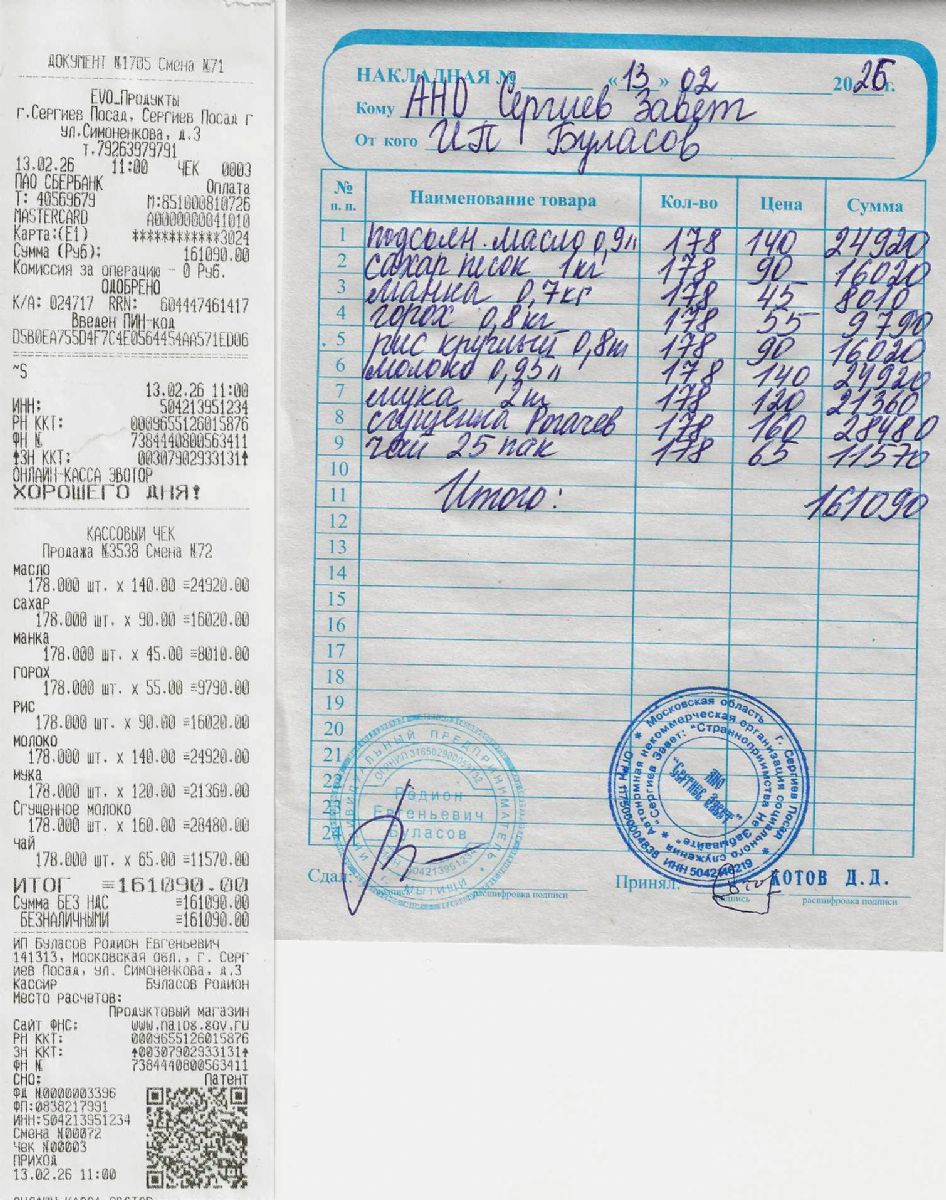 ДОКУМЕНТ №1705 Смена №71
EVO_Продукты
г.Сергиев Посад, Сергиев Посад г
ул.Симоненкова, д.3
т.79263979791
13.02.26 11:00 ЧЕК 0003
ПАО СБЕРБАНК Оплата
Т: 40569679 М:851000810726
MASTERCARD A0000000041010
Карта:(E1) ************3024
Сумма (Руб): 161090.00
Комиссия за операцию - 0 Руб.
ОДОБРЕНО
К/А: 024717 RRN: 604447461417
Введен ПИН-код
D5B0EA755D4F7C4E0564454AA571ED06
~S
13.02.26 11:00
ИНН: 504213951234
РН ККТ: 0009655126015876
ФН № 7384440800563411
↑ЗН ККТ: 00307902933131↑
ОНЛАЙН-КАССА ЭВОТОР
ХОРОШЕГО ДНЯ!
КАССОВЫЙ ЧЕК
Продажа №3538 Смена №72
масло
178.000 шт. x 140.00 =24920.00
сахар
178.000 шт. x 90.00 =16020.00
манка
178.000 шт. x 45.00 =8010.00
горох
178.000 шт. x 55.00 =9790.00
рис
178.000 шт. x 90.00 =16020.00
молоко
178.000 шт. x 140.00 =24920.00
мука
178.000 шт. x 120.00 =21360.00
Сгущенное молоко
178.000 шт. x 160.00 =28480.00
чай
178.000 шт. x 65.00 =11570.00
ИТОГ =161090.00
Сумма БЕЗ НДС =161090.00
БЕЗНАЛИЧНЫМИ =161090.00
ИП Буласов Родион Евгеньевич
141313, Московская обл., г. Серг
иев Посад, ул. Симоненкова, д.3
Кассир Буласов Родион
Место расчетов:
Продуктовый магазин
Сайт ФНС: www.nalog.gov.ru
РН ККТ: 0009655126015876
ЗН ККТ: ↑00307902933131↑
ФН № 7384440800563411
СНО: Патент
ФД №0000003396
ФП:0838217991
ИНН:504213951234
Смена №00072
Чек №00003
ПРИХОД
13.02.26 11:00
НАКЛАДНАЯ № «13» 02 2026 г.
Кому АНО Сергиев Завет
От кого ИП Буласов
№ п. п. Наименование товара Кол-во Цена Сумма
1 подсолн. масло 0,9л 178 140 24920
2 сахар песок 1кг 178 90 16020
3 манка 0,7кг 178 45 8010
4 горох 0,8кг 178 55 9790
5 рис круглый 0,8кг 178 90 16020
6 молоко 0,95л 178 140 24920
7 мука 2кг 178 120 21360
8 сгущенка Рогачев 178 160 28480
9 чай 25 пак 178 65 11570
10
11 Итого: 161090
12
13
14
15
16
17
18
19
20
21
22
23
24
ИНДИВИДУАЛЬНЫЙ ПРЕДПРИНИМАТЕЛЬ
Родион
Евгеньевич
Буласов
ИНН 504213951234
г. МЫТИЩИ
Московская область г. Сергиев Посад
Автономная некоммерческая организация социального служения
"Сергиев Завет: "Странноприимства Не Забывайте"
АНО
"Сергиев Завет"
ИНН 5042146219
Сдал: Принял: КОТОВ Д.Д.
подпись расшифровка подписи подпись расшифровка подписи